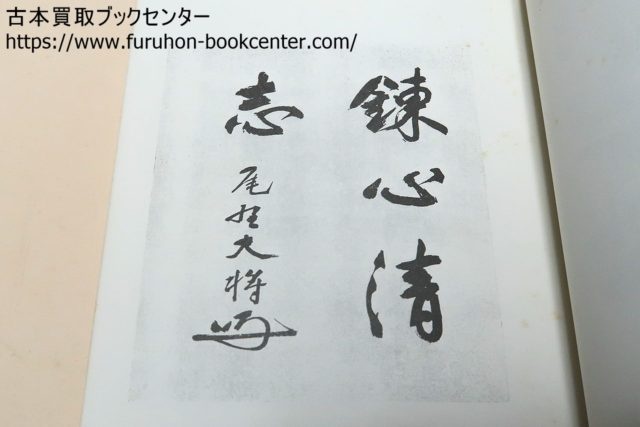 古本買取ブックセンター
https://www.furuhon-bookcenter.com/
錬心清
志
尾野大将